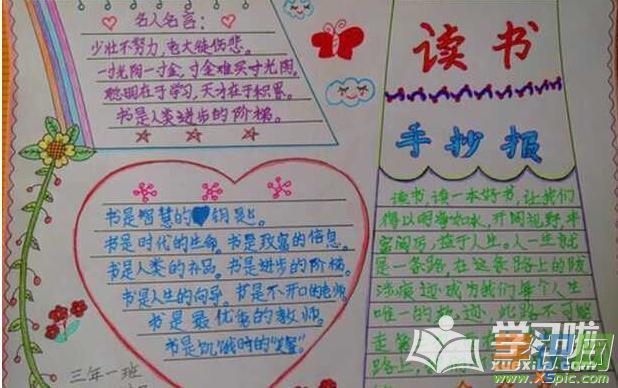 名人名言:
少壮不努力,老大徒伤悲。
一寸光阴一寸金,寸金难买寸光阴。
聪明在于学习,天才在于积累。
书是人类进步的阶梯。
读书
手抄报
书是智慧的钥匙。
书是时代的生命。书是致富的信息。
书是人类的补品。书是进步的阶梯。
书是人生的向导。书是不开口的老师。
书是最优秀的教师。
书是饥饿时的
读书,读一本好书,让我们
得以明净如水,开阔视野,丰
富阅历,益于人生。人一生就
是一条路,在这条路上的跋
涉痕迹成为我们每个人生
唯一的轨迹,此路不可能
走
路上,
三年一班
学习啦
识网
X5pic.com